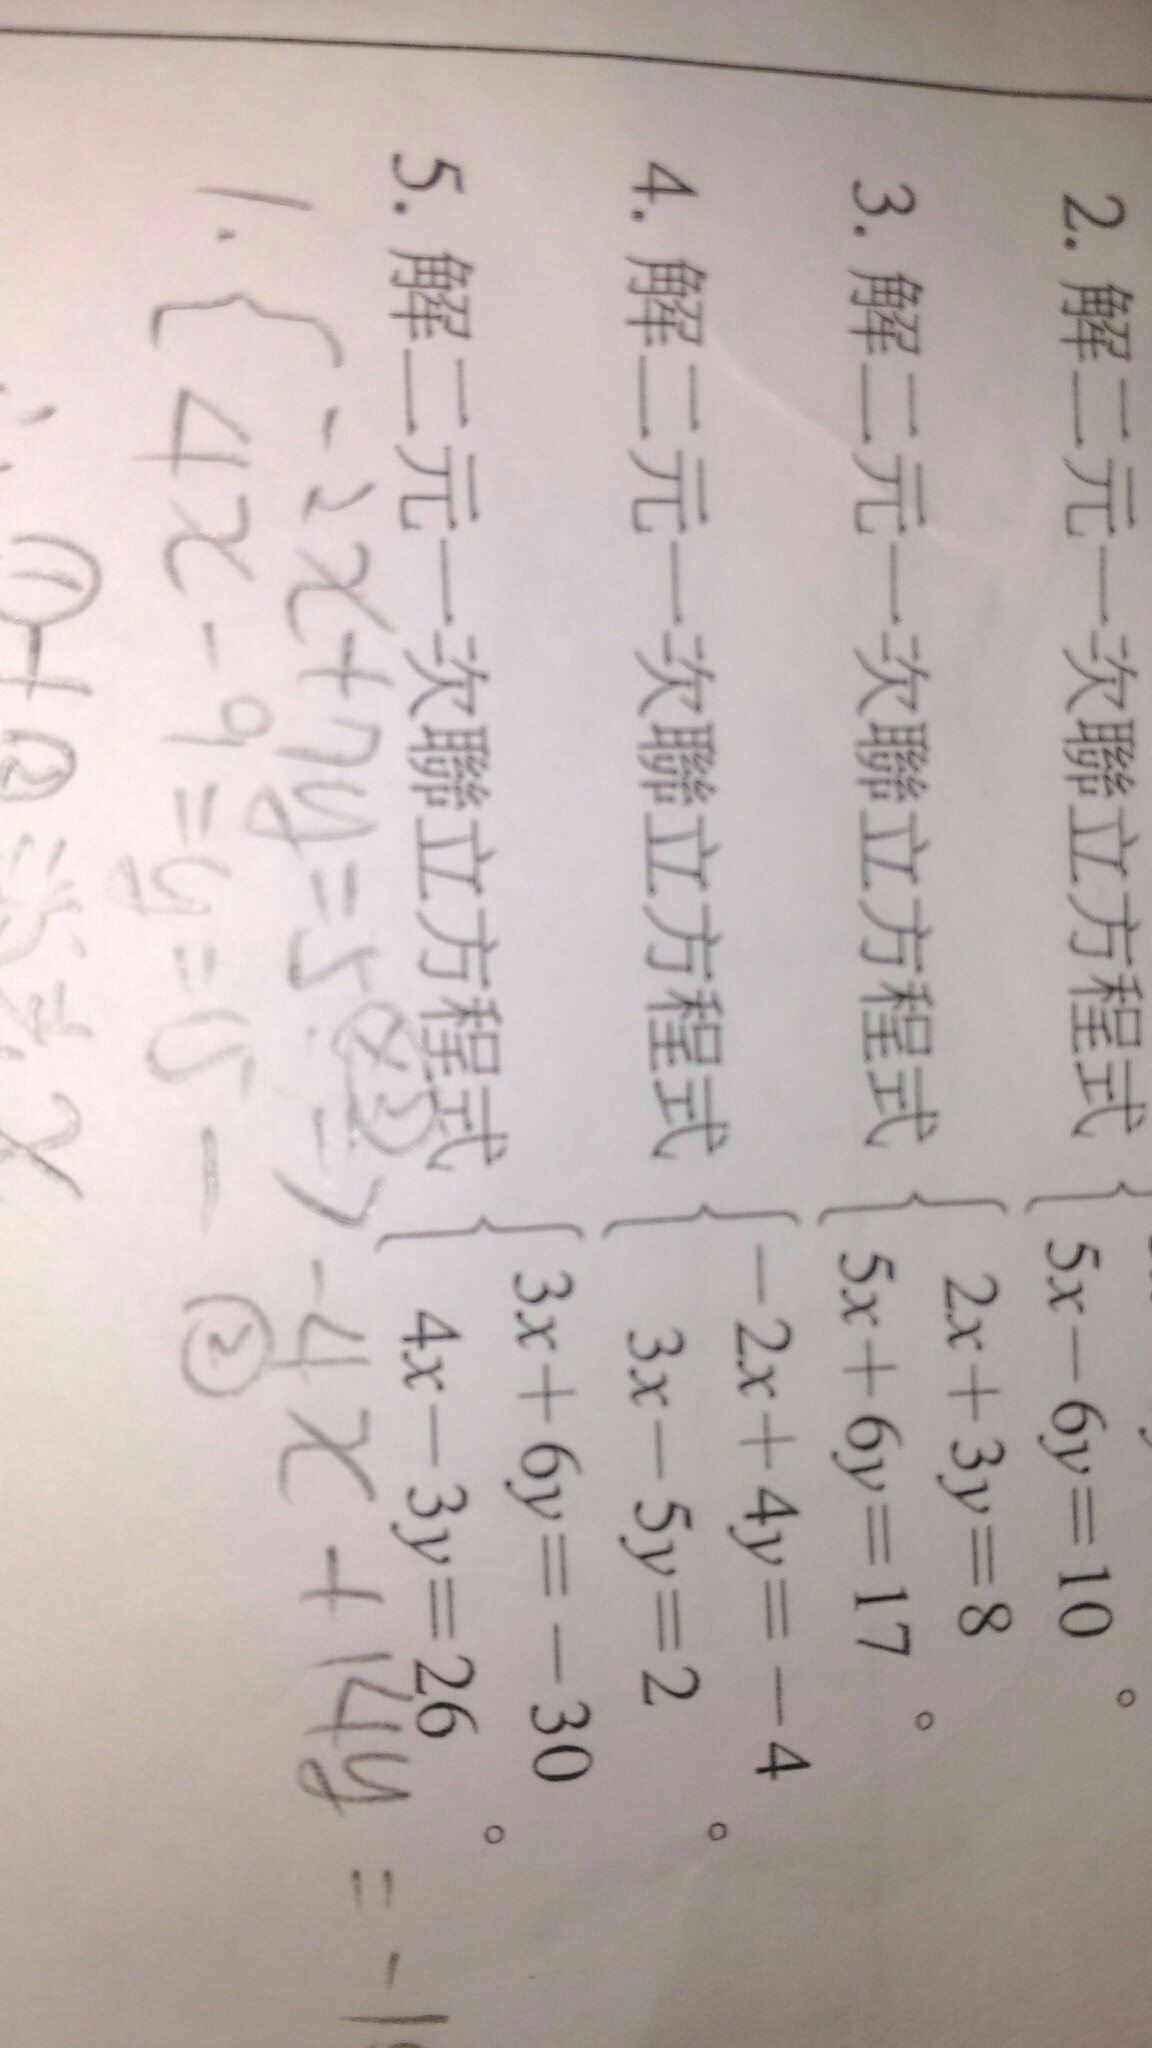 2. 解二元一次聯立方程式
5x－6y＝10。
3. 解二元一次聯立方程式
2x＋3y＝8
5x＋6y＝17。
4. 解二元一次聯立方程式
－2x＋4y＝－4
3x－5y＝2。
5. 解二元一次聯立方程式
3x＋6y＝－30
4x－3y＝26。
1. -2x+7y=5 -4x+14y=-1
4x-9=y=15 - ②
①+②